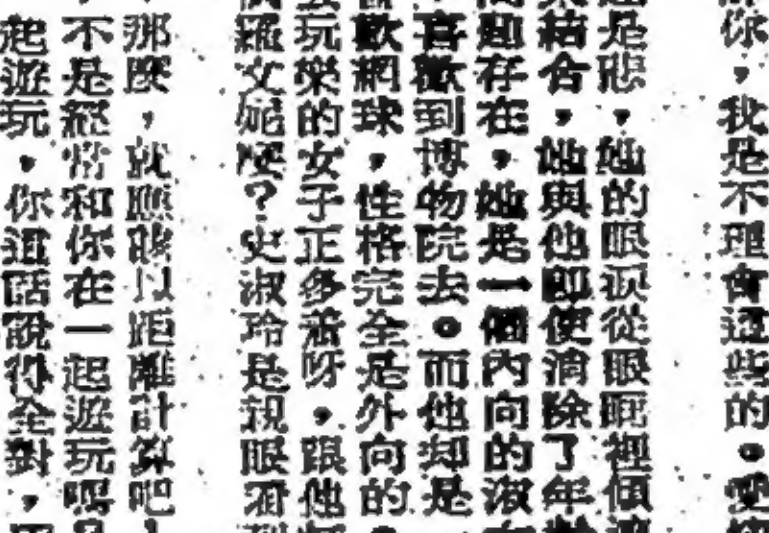 你，我是不理會這些的。愛
是悲，她的眼淚從眼眶裡傾
結合，她與他即使消除了年齡
存在，她是一個內向的淑
，喜歡到博物院去。而他却是一
歡網球，性格完全是外向的。
玩樂的女子正多着呀，跟他
羅文妮麼？史淑玲是親眼看到
那麼，就應該以距離計算吧！
不是經常和你在一起遊玩嗎？
起遊玩，你這話說得全對，